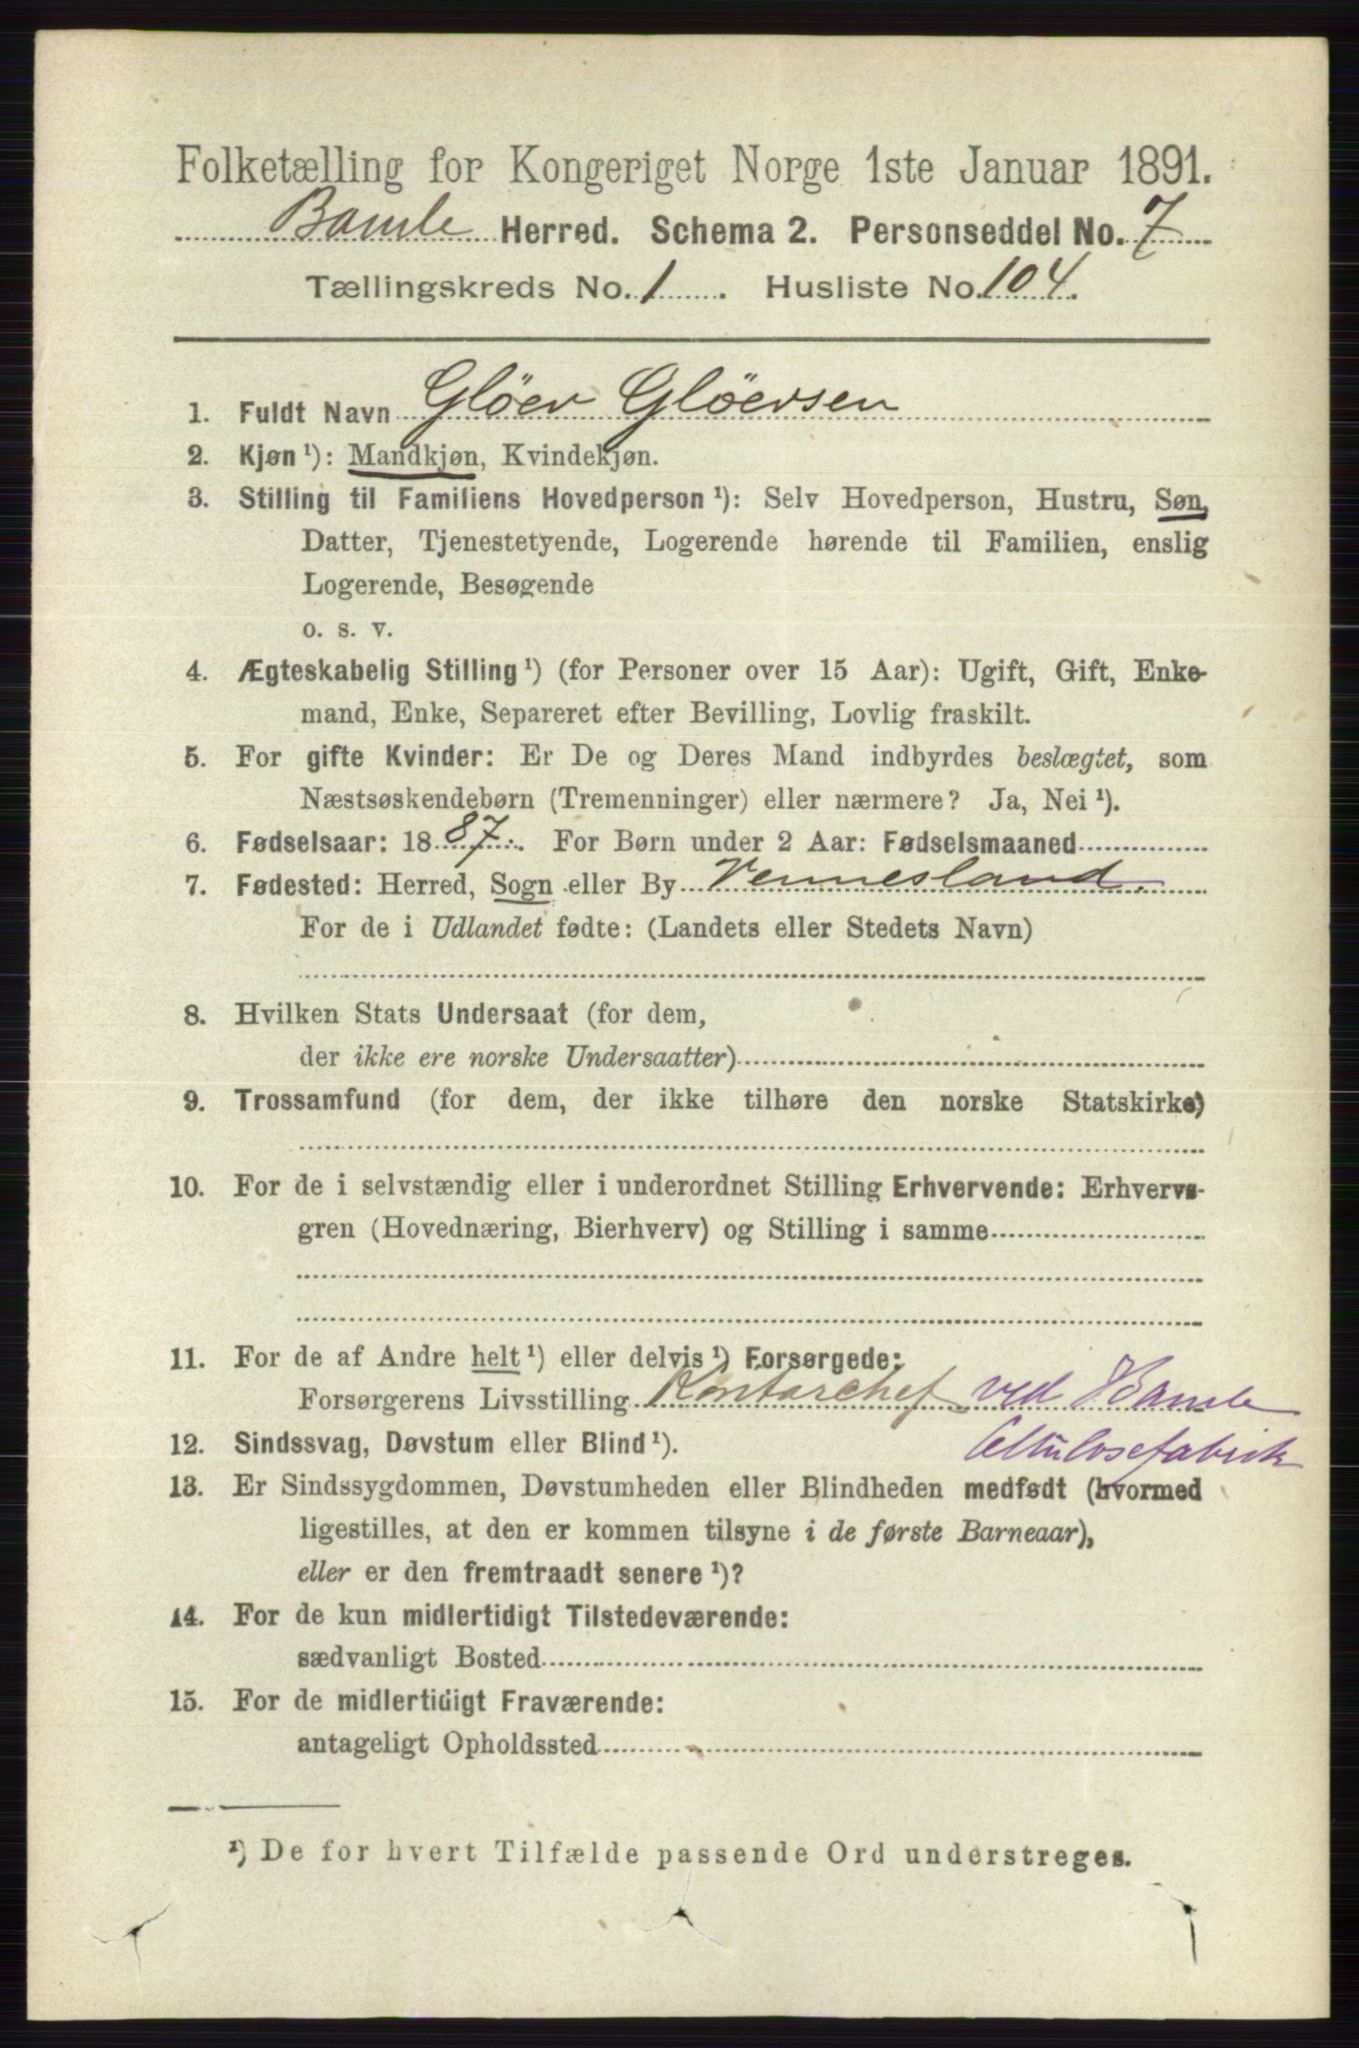 Folketælling for Kongeriget Norge 1ste Januar 1891.
Bamle Herred. Schema 2. Personseddel No. 7
Tællingskreds No. 1. Husliste No. 104.
1. Fuldt Navn Glöer Glöersen
2. Kjøn ¹): Mandkjøn, Kvindekjøn.
3. Stilling til Familiens Hovedperson ¹): Selv Hovedperson, Hustru, Søn,
Datter, Tjenestetyende, Logerende hørende til Familien, enslig
Logerende, Besøgende
o. s. v.
4. Ægteskabelig Stilling ¹) (for Personer over 15 Aar): Ugift, Gift, Enke-
mand, Enke, Separeret efter Bevilling, Lovlig fraskilt.
5. For gifte Kvinder: Er De og Deres Mand indbyrdes beslægtet, som
Næstsøskendebørn (Tremenninger) eller nærmere? Ja, Nei ¹).
6. Fødselsaar: 1887. For Børn under 2 Aar: Fødselsmaaned
7. Fødested: Herred, Sogn eller By Vennesland.
For de i Udlandet fødte: (Landets eller Stedets Navn)
8. Hvilken Stats Undersaat (for dem,
der ikke ere norske Undersaatter)
9. Trossamfund (for dem, der ikke tilhøre den norske Statskirke)
10. For de i selvstændig eller i underordnet Stilling Erhvervende: Erhvervs-
gren (Hovednæring, Bierhverv) og Stilling i samme
11. For de af Andre helt ¹) eller delvis ¹) Forsørgede:
Forsørgerens Livsstilling Kontorchef ved Bamle
Cellulosefabrik
12. Sindssvag, Døvstum eller Blind ¹).
13. Er Sindssygdommen, Døvstumheden eller Blindheden medfødt (hvormed
ligestilles, at den er kommen tilsyne i de første Barneaar),
eller er den fremtraadt senere ¹)?
14. For de kun midlertidigt Tilstedeværende:
sædvanligt Bosted
15. For de midlertidigt Fraværende:
antageligt Opholdssted
¹) De for hvert Tilfælde passende Ord understreges.